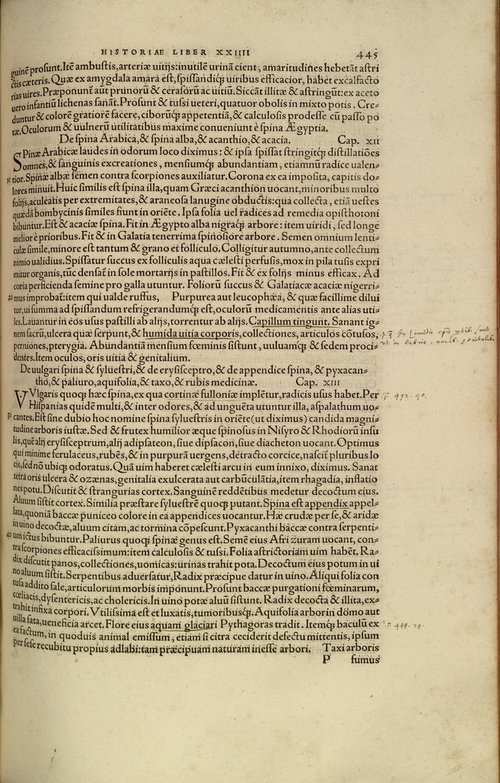 HISTORIAE LIBER XXIIII 445
guinē prosunt. Itē ambustis, arteriæ uitijs: inutilē urinā cient, amaritudines hebetāt astri
ctis cæteris. Quæ ex amygdala amara est, spissandiq; uiribus efficacior, habet excalfacto
rias uires. Præponunt aūt prunorū & cerasorū ac uitiū. Siccāt illitæ & astringūt: ex aceto
uero infantiū lichenas sanāt. Prosunt & tussi ueteri, quatuor obolis in mixto potis. Cre-
duntur & colorē gratiorē facere, ciborūq; appetentiā, & calculosis prodesse cū passo po
tæ. Oculorum & uulnerū utilitatibus maxime conueniunt ē spina Ægyptia.
De spina Arabica, & spina alba, & acanthio, & acacia. Cap. XII
SPinæ Arabicæ laudes in odorum loco diximus: & ipsa spissat stringitq; distillatiōes
omnes, & sanguinis excreationes, mensiumq; abundantiam, etiānū radice ualen-
tior. Spinæ albæ semen contra scorpiones auxiliatur. Corona ex ea imposita, capitis do-
lores minuit. Huic similis est spina illa, quam Græci acanthion uocant, minoribus multo
folijs, aculeatis per extremitates, & araneosa lanugine obductis: qua collecta, etiā uestes
quædā bombycinis similes fiunt in oriēte. Ipsa folia uel radices ad remedia opisthotoni
bibuntur. Est & acaciæ spina. Fit in Ægypto alba nigraq; arbore: item uiridi, sed longe
melior ē prioribus. Fit & in Galatia tenerrima spinosiore arbore. Semen omnium lenti-
culæ simile, minore est tantum & grano et folliculo. Colligitur autumno, ante collectum
nimio ualidius. Spissatur succus ex folliculis aqua cælesti perfusis, mox in pila tusis expri
mitur organis, tūc densat̃ in sole mortarijs in pastillos. Fit & ex folijs minus efficax. Ad
coria perficienda semine pro galla utuntur. Foliorū succus & Galaticæ acaciæ nigerri-
mus improbat̃: item qui ualde ruffus, Purpurea aut leucophæa, & quæ facillime dilui
tur, ui summa ad spissandum refrigerandumq; est, oculorū medicamentis ante alias uti-
les. Lauantur in eos usus pastilli ab alijs, torrentur ab alijs. Capillum tingunt. Sanant ig-
nem sacrū, ulcera quæ serpunt, & humida uitia corporis, collectiones, articulos cōtusos,
perniones, pterygia. Abundantiā mensium fœminis sistunt, uuluamq; & sedem proci-
dentes. Item oculos, oris uitia & genitalium.
De uulgari spina & syluestri, & de erysisceptro, & de appendice spina, & pyxacan-
tho, & paliuro, aquifolia, & taxo, & rubis medicinæ. Cap. XIII
VVlgaris quoq; hæc spina, ex qua cortinæ fulloniæ implētur, radicis usus habet. Per
Hispanias quidē multi, & inter odores, & ad unguēta utuntur illa, aspalathum uo-
cantes. Est sine dubio hoc nomine spina syluestris in oriēte (ut diximus) candida magni-
tudine arboris iustæ. Sed & frutex humilior æque spinosus in Nisyro & Rhodiorū insu
lis, quē alij erysisceptrum, alij adipsateon, siue dipsacon, siue diacheton uocant. Optimus
qui minime ferulaceus, rubēs, & in purpurā uergens, detracto corcice, nascit̃ pluribus lo
cis, sed nō ubiq; odoratus. Quā uim haberet cælesti arcu in eum innixo, diximus. Sanat
tetra oris ulcera & ozænas, genitalia exulcerata aut carbūculātia, item rhagadia, inflatio
nes potu. Discutit & strangurias cortex. Sanguinē reddētibus medetur decoctum eius.
Aluum sistit cortex. Similia præstare syluestrē quoq; putant. Spina est appendix appel-
lata, quoniā baccæ puniceo colore in ea appendices uocantur. Hæ crudæ per se, & aridæ
in uino decoctæ, aluum citam, ac tormina cōpescunt. Pyxacanthi baccæ contra serpenti-
um ictus bibuntur. Paliurus quoq; spinæ genus est. Semē eius Afri zuram uocant, con-
tra scorpiones efficacissimum: item calculosis & tussi. Folia astrictoriam uim habēt. Ra-
dix discutit panos, collectiones, uomicas: urinas trahit pota. Decoctum eius potum in ui
no aluum sistit. Serpentibus aduersatur, Radix præcipue datur in uino. Aliqui folia con
tusa addito sale, articulorum morbis imponunt. Prosunt baccæ purgationi fœminarum,
cœliacis, dysentericis, ac cholericis. In uino potæ aluū sistunt. Radix decocta & illita, ex-
trahit infixa corpori. Vtilissima est et luxatis, tumoribusq;. Aquifolia arbor in domo aut
uilla sata, ueneficia arcet. Flore eius aquam glaciari Pythagoras tradit. Itemq; baculū ex
ea factum, in quoduis animal emissum, etiam si citra ceciderit defectu mittentis, ipsum
per sese recubitu propius adlabi: tam præcipuam naturam inesse arbori. Taxi arboris
P fumus